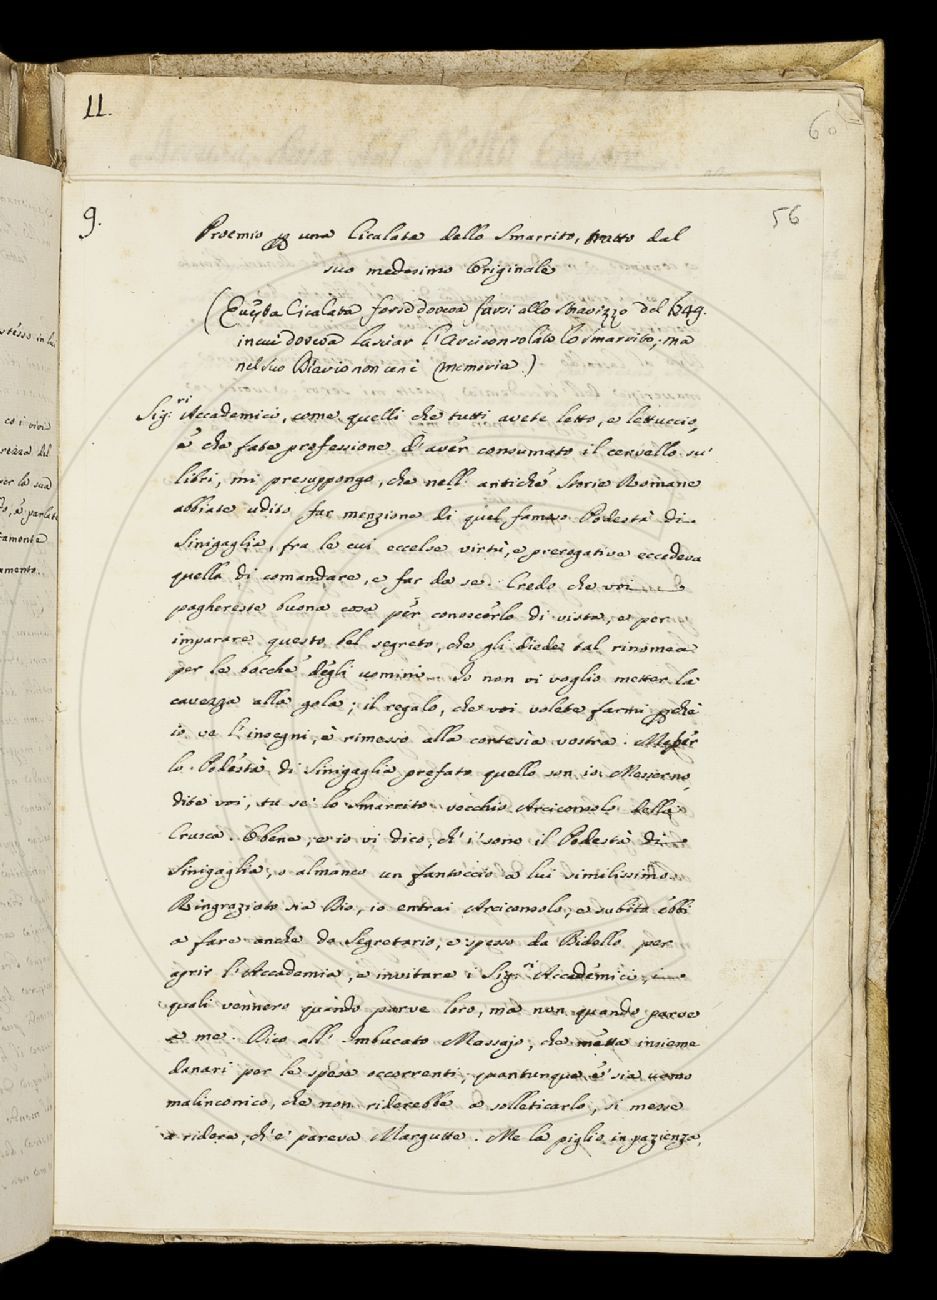 11.
60
9.
56
Proemio p una Cicalata dello Smarrito, tratto dal
suo medesimo Originale
(Questa Cicalata forse doveva farsi allo Stravizzo del 1649.
in cui doveva lasciar l'Arciconsolato lo Smarrito; ma
nel suo Diario non cen'è memoria.)
Sig.ri Accademici, come quelli che tutti avete letto, e lettuccio,
e che fate professione d'aver consumato il cervello su'
libri, mi presuppongo, che nell' antiche Storie Romane
abbiate udito far menzione di quel famoso Podestà di
Sinigaglia, fra le cui eccelse virtù, e prerogative eccedeva
quella di comandare, e far da se. Credo che voi
paghereste buona cosa per conoscerlo di vista, e per
imparare questo bel segreto, che gli diede tal rinomea
per le bocche degli uomini. Io non vi voglio metter la
cavezza alla gola; il regalo, che voi volete farmi pchè
io ve l'insegni, è rimesso alla cortesia vostra.
lo Podestà di Sinigaglia prefato quello son io. Messerno,
dite voi, tu se' lo Smarrito vecchio Arciconsolo della
Crusca. Ebene, e io vi dico, ch' i' sono il Podestà di
Sinigaglia, o almanco un fantoccio a lui similissimo.
Ringraziato sia Dio, io entrai Arciconsolo, e subito ebbi
a fare anche da Segretario, e spesso da Bidello per
aprir l'Accademia, e invitare i Sig.ri Accademici, i
quali vennero quando parve loro, ma non quando parve
a me. Dico all' Imbucato Massajo, che metta insieme
danari per le spese occorrenti, quantunque e' sia uomo
malinconico, che non riderebbe a solleticarlo, si messe
a ridere, ch' e' pareva Margutte. Me la piglio in pazienza,